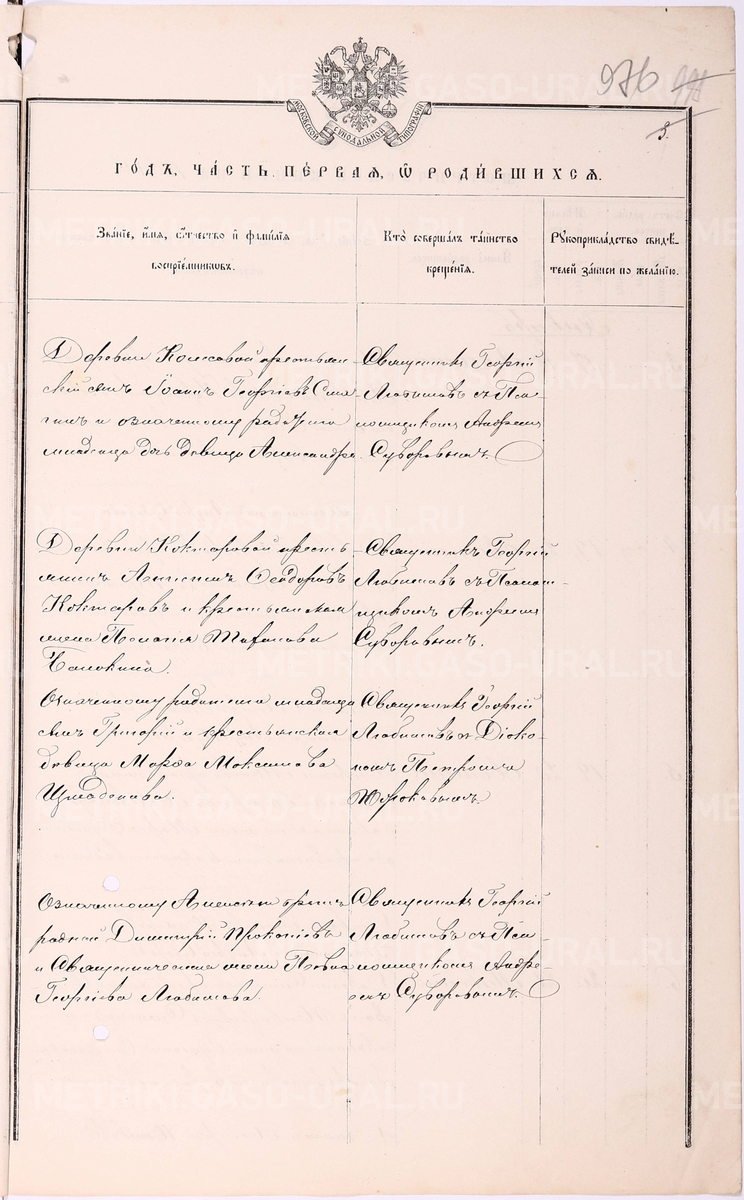 976
5.
МОСКОВСКОЙ СѴНОДАЛЬНОЙ ТИПОГРАФІИ
ГО́ДЪ, ЧА́СТЬ ПЕ́РВАЯ, Ѽ РОДИ́ВШИХСЯ.
Зва́нїе, и҆́мѧ, ѻ҆́тчество и҆ фами́лїѧ
воспрїе́мниковъ.
Кто̀ соверша́лъ та́инство
креще́нїѧ.
Рꙋкоприкла́дство свидѣ́-
телей за́писи по жела́нїю.
Деревни крестьян
скій сынъ Іоаннъ Георгіевъ
и означенному родителю
младенца дочь девица Александра.
Священникъ Георгій
Любимовъ съ Пса
ломщикомъ Андреемъ
Суворовымъ.
Деревни Коктаровой кресть
янинъ Ѳеодоровъ
Коктаровъ и крестьянская
жена
Священникъ Георгій
Любимовъ съ Псалом-
щикомъ Андреемъ
Суворовымъ.
Означенному родителю младенца
сынъ Григорій и крестьянская
девица Марѳа Максимова
Священникъ Георгій
Любимовъ съ Діако-
номъ Петромъ
Означенному братъ
родной Димитрій Прокопіевъ
и Священническая жена
Георгіева Любимова.
Священникъ Георгій
Любимовъ съ Пса-
ломщикомъ Андре-
емъ Суворовымъ.
METRIKI.GASO-URAL.RU